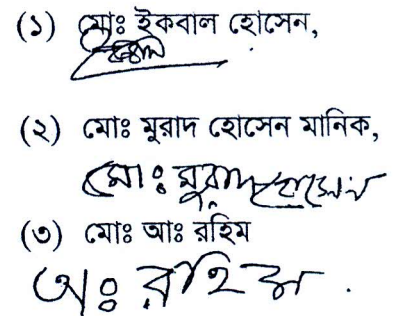 (১) মোঃ ইকবাল হোসেন,
(২) মোঃ মুরাদ হোসেন মানিক,
মোঃ মুরাদ হোসেন
(৩) মোঃ আঃ রহিম
আঃ রহিম